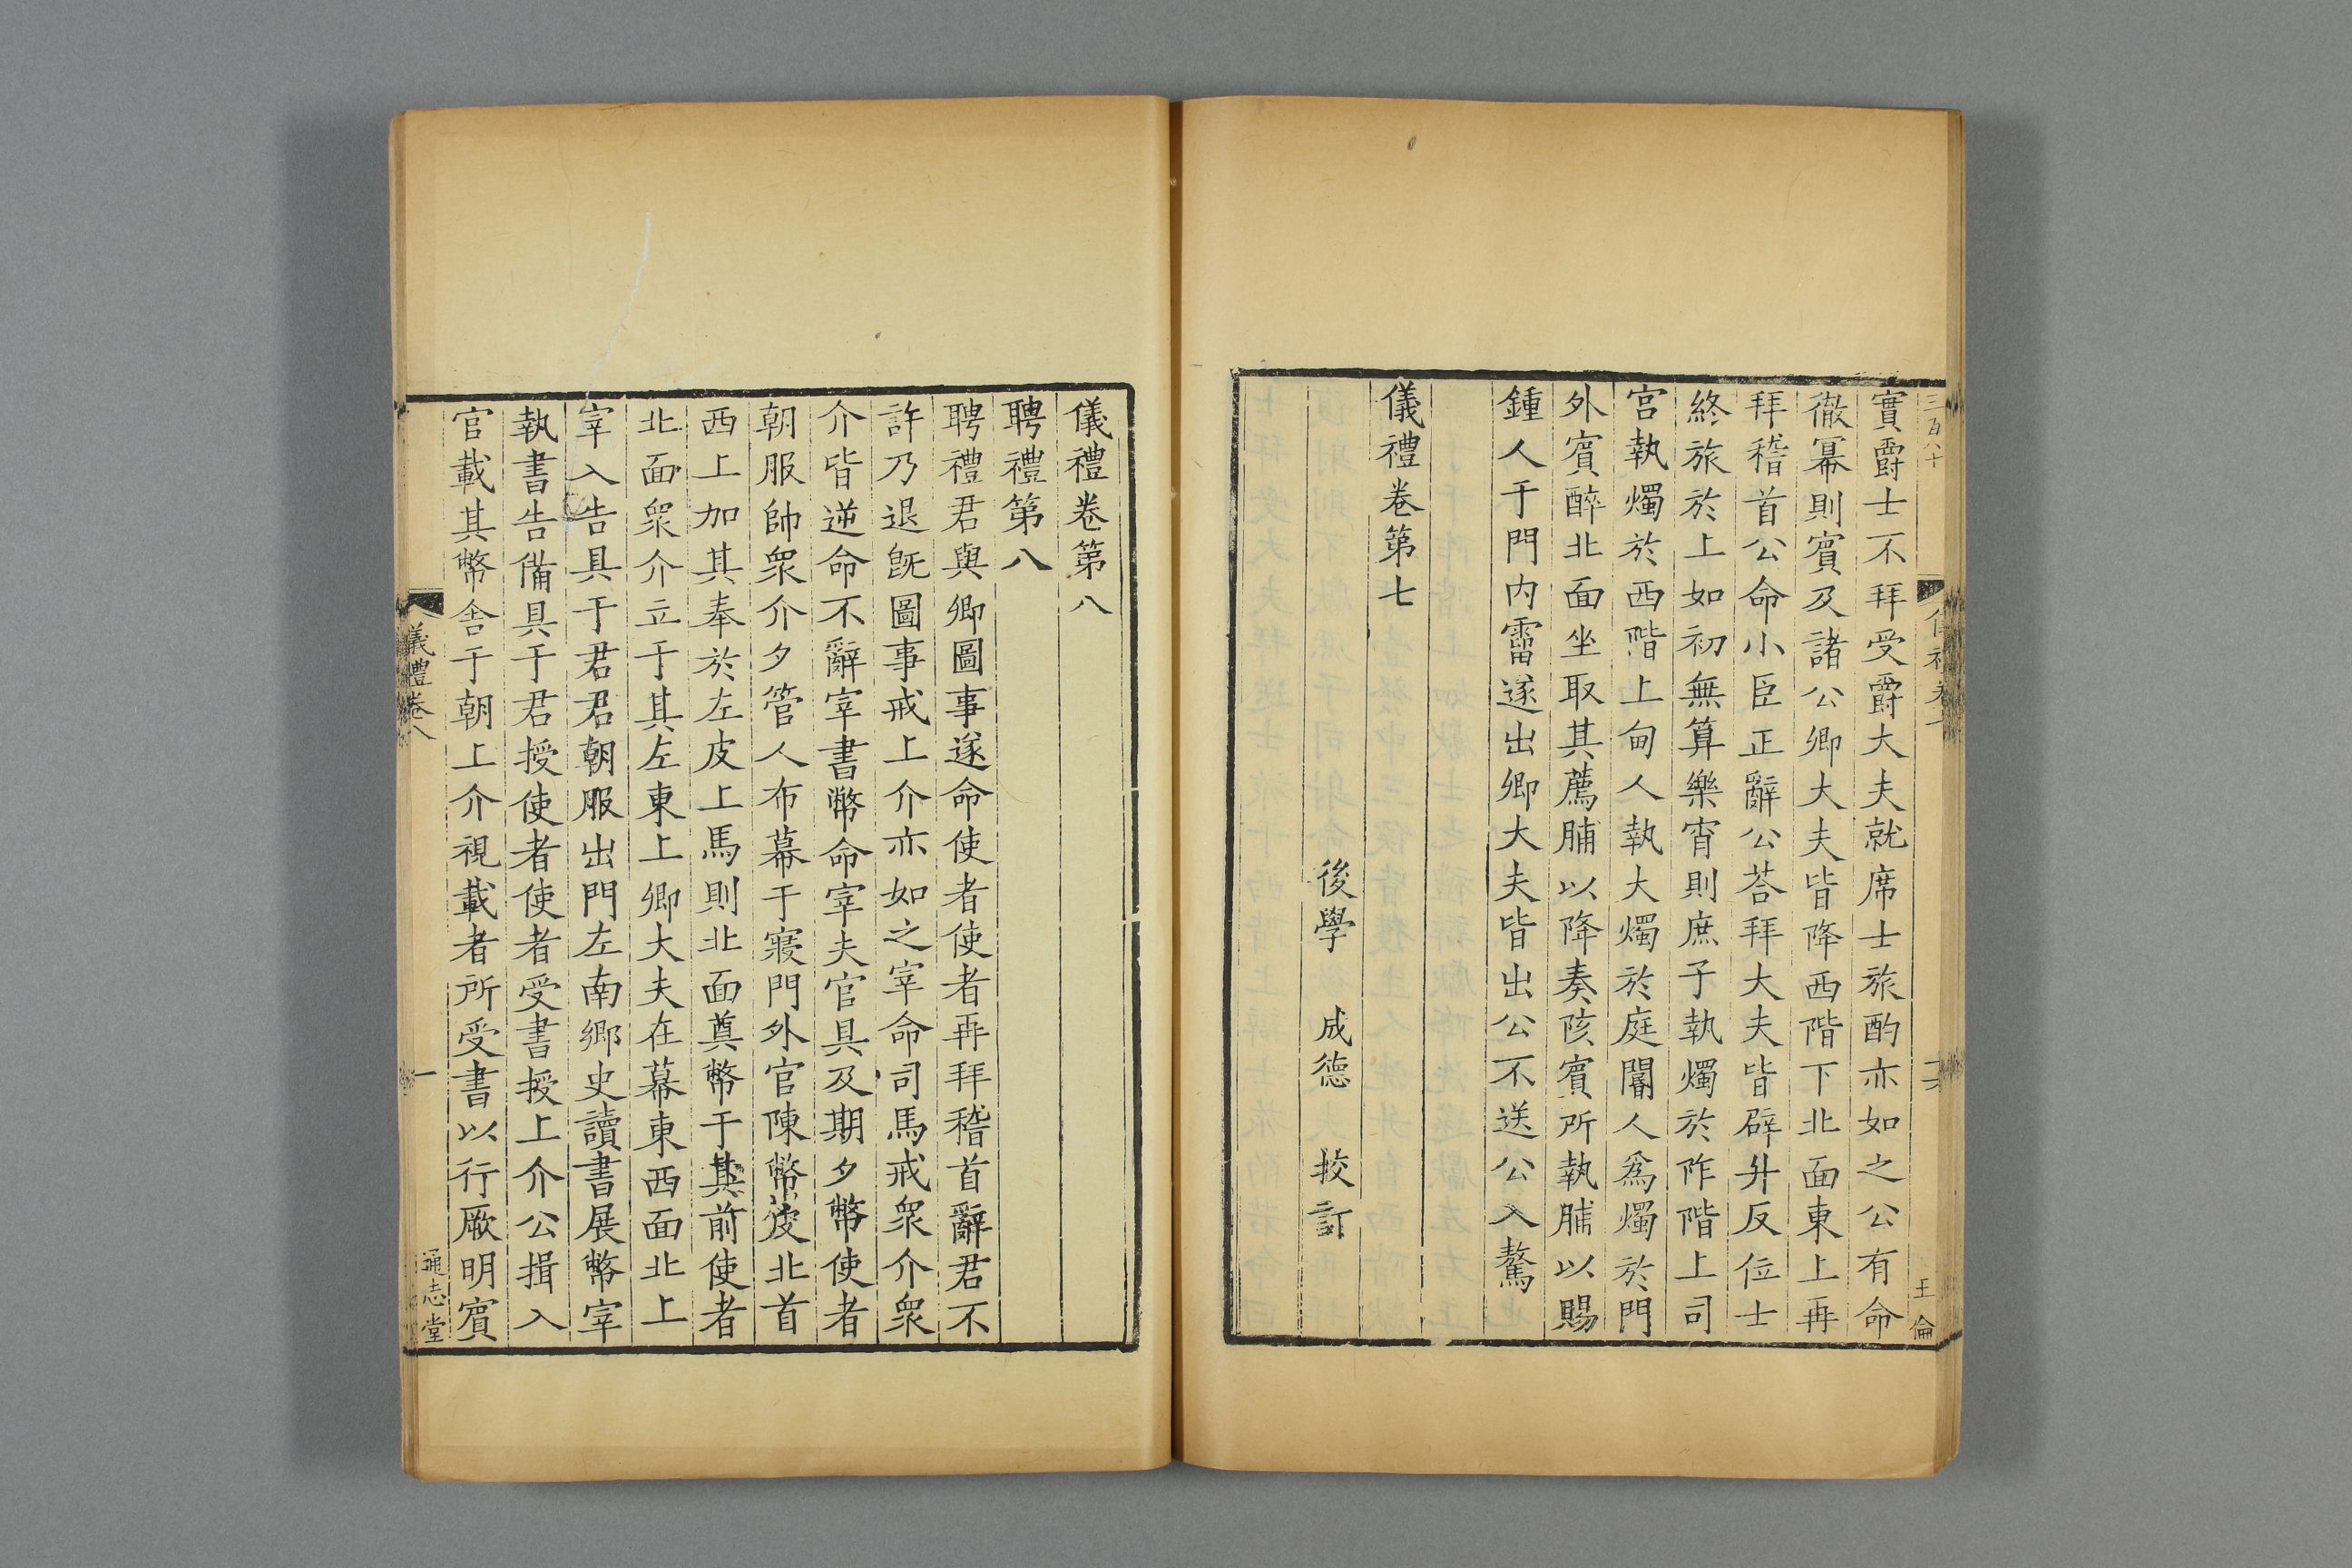 三百八十
王倫
實爵士不拜受爵大夫就席士旅酌亦如之公有命
徹冪則賓及諸公卿大夫皆降西階下北面東上再
拜稽首公命小臣正辭公荅拜大夫皆辟升反位士
終旅於上如初無算樂宵則庶子執燭於阼階上司
宮執燭於西階上甸人執大燭於庭閽人爲燭於門
外賓醉北面坐取其薦脯以降奏陔賓所執脯以賜
鍾人于門内霤遂出卿大夫皆出公不送公入驁
儀禮卷第七
後學 成德 挍訂
儀禮卷第八
聘禮第八
聘禮君與卿圖事遂命使者使者再拜稽首辭君不
許乃退旣圖事戒上介亦如之宰命司馬戒衆介衆
介皆逆命不辭宰書幣命宰夫官具及期夕幣使者
朝服帥衆介夕管人布幕于寢門外官陳幣皮北首
西上加其奉於左皮上馬則北面奠幣于其前使者
北面衆介立于其左東上卿大夫在幕東西面北上
宰入告具于君君朝服出門左南鄉史讀書展幣宰
執書告備具于君授使者使者受書授上介公揖入
官載其幣舍于朝上介視載者所受書以行厥明賓
儀禮卷八
一
通志堂